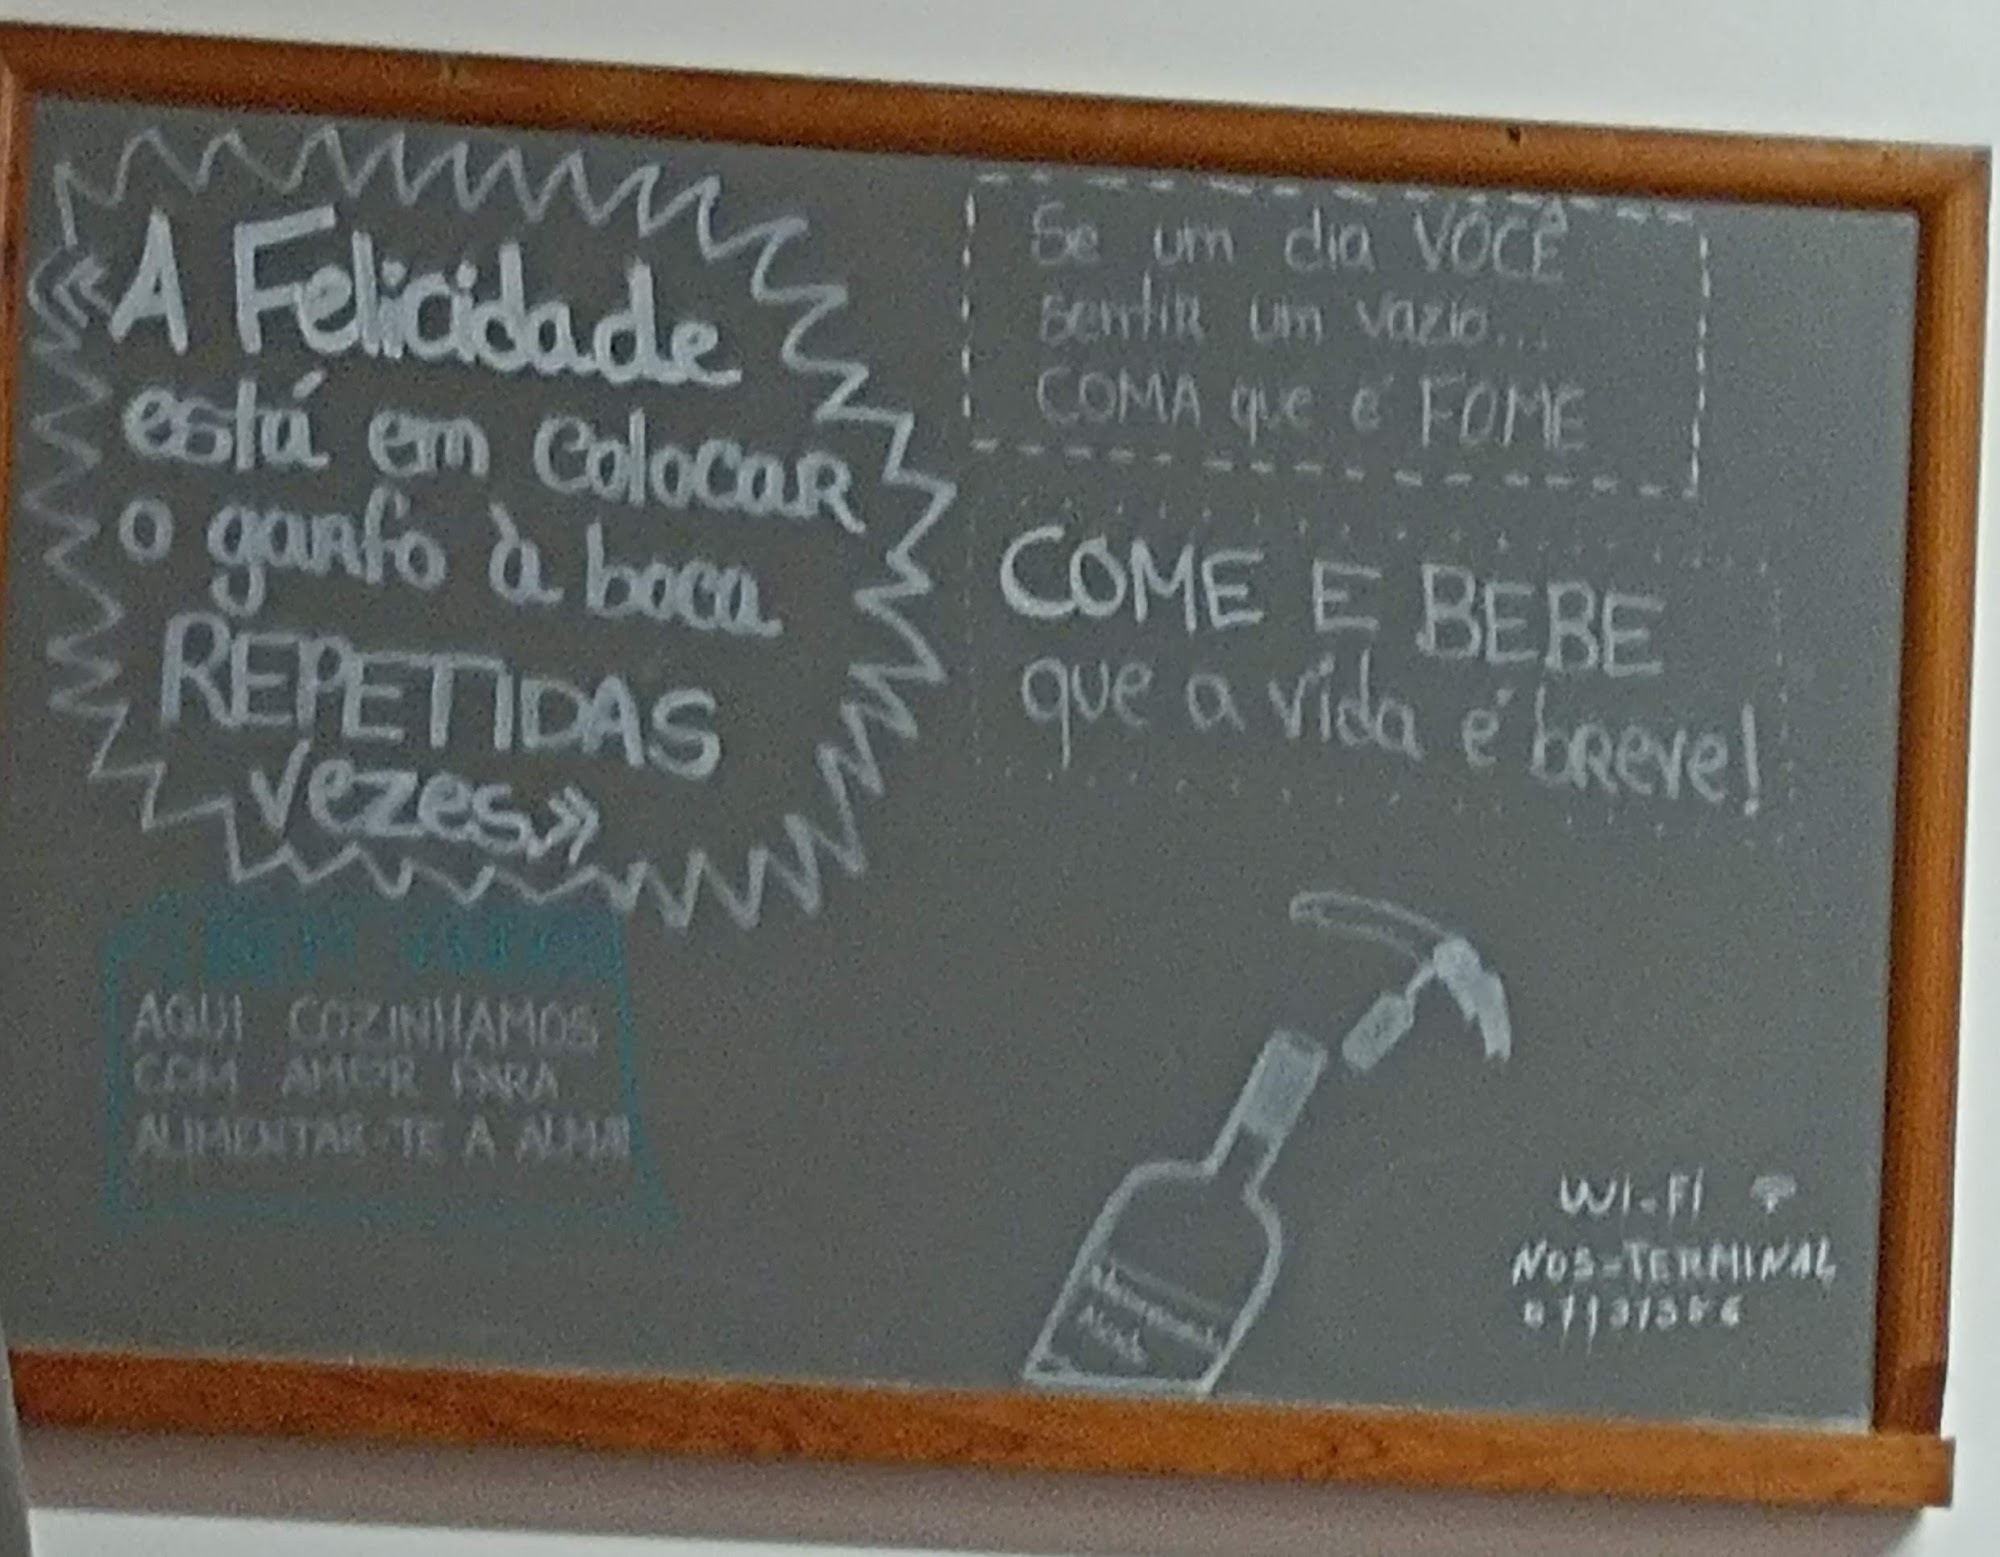 «A Felicidade
está em colocar
o garfo à boca
REPETIDAS
vezes»
Se um dia VOCÊ
sentir um vazio...
COMA que é FOME
COME E BEBE
que a vida é breve!
AQUI COZINHAMOS
COM AMOR PARA
ALIMENTAR-TE A ALMA
WI-FI
NOS-TERMINAL